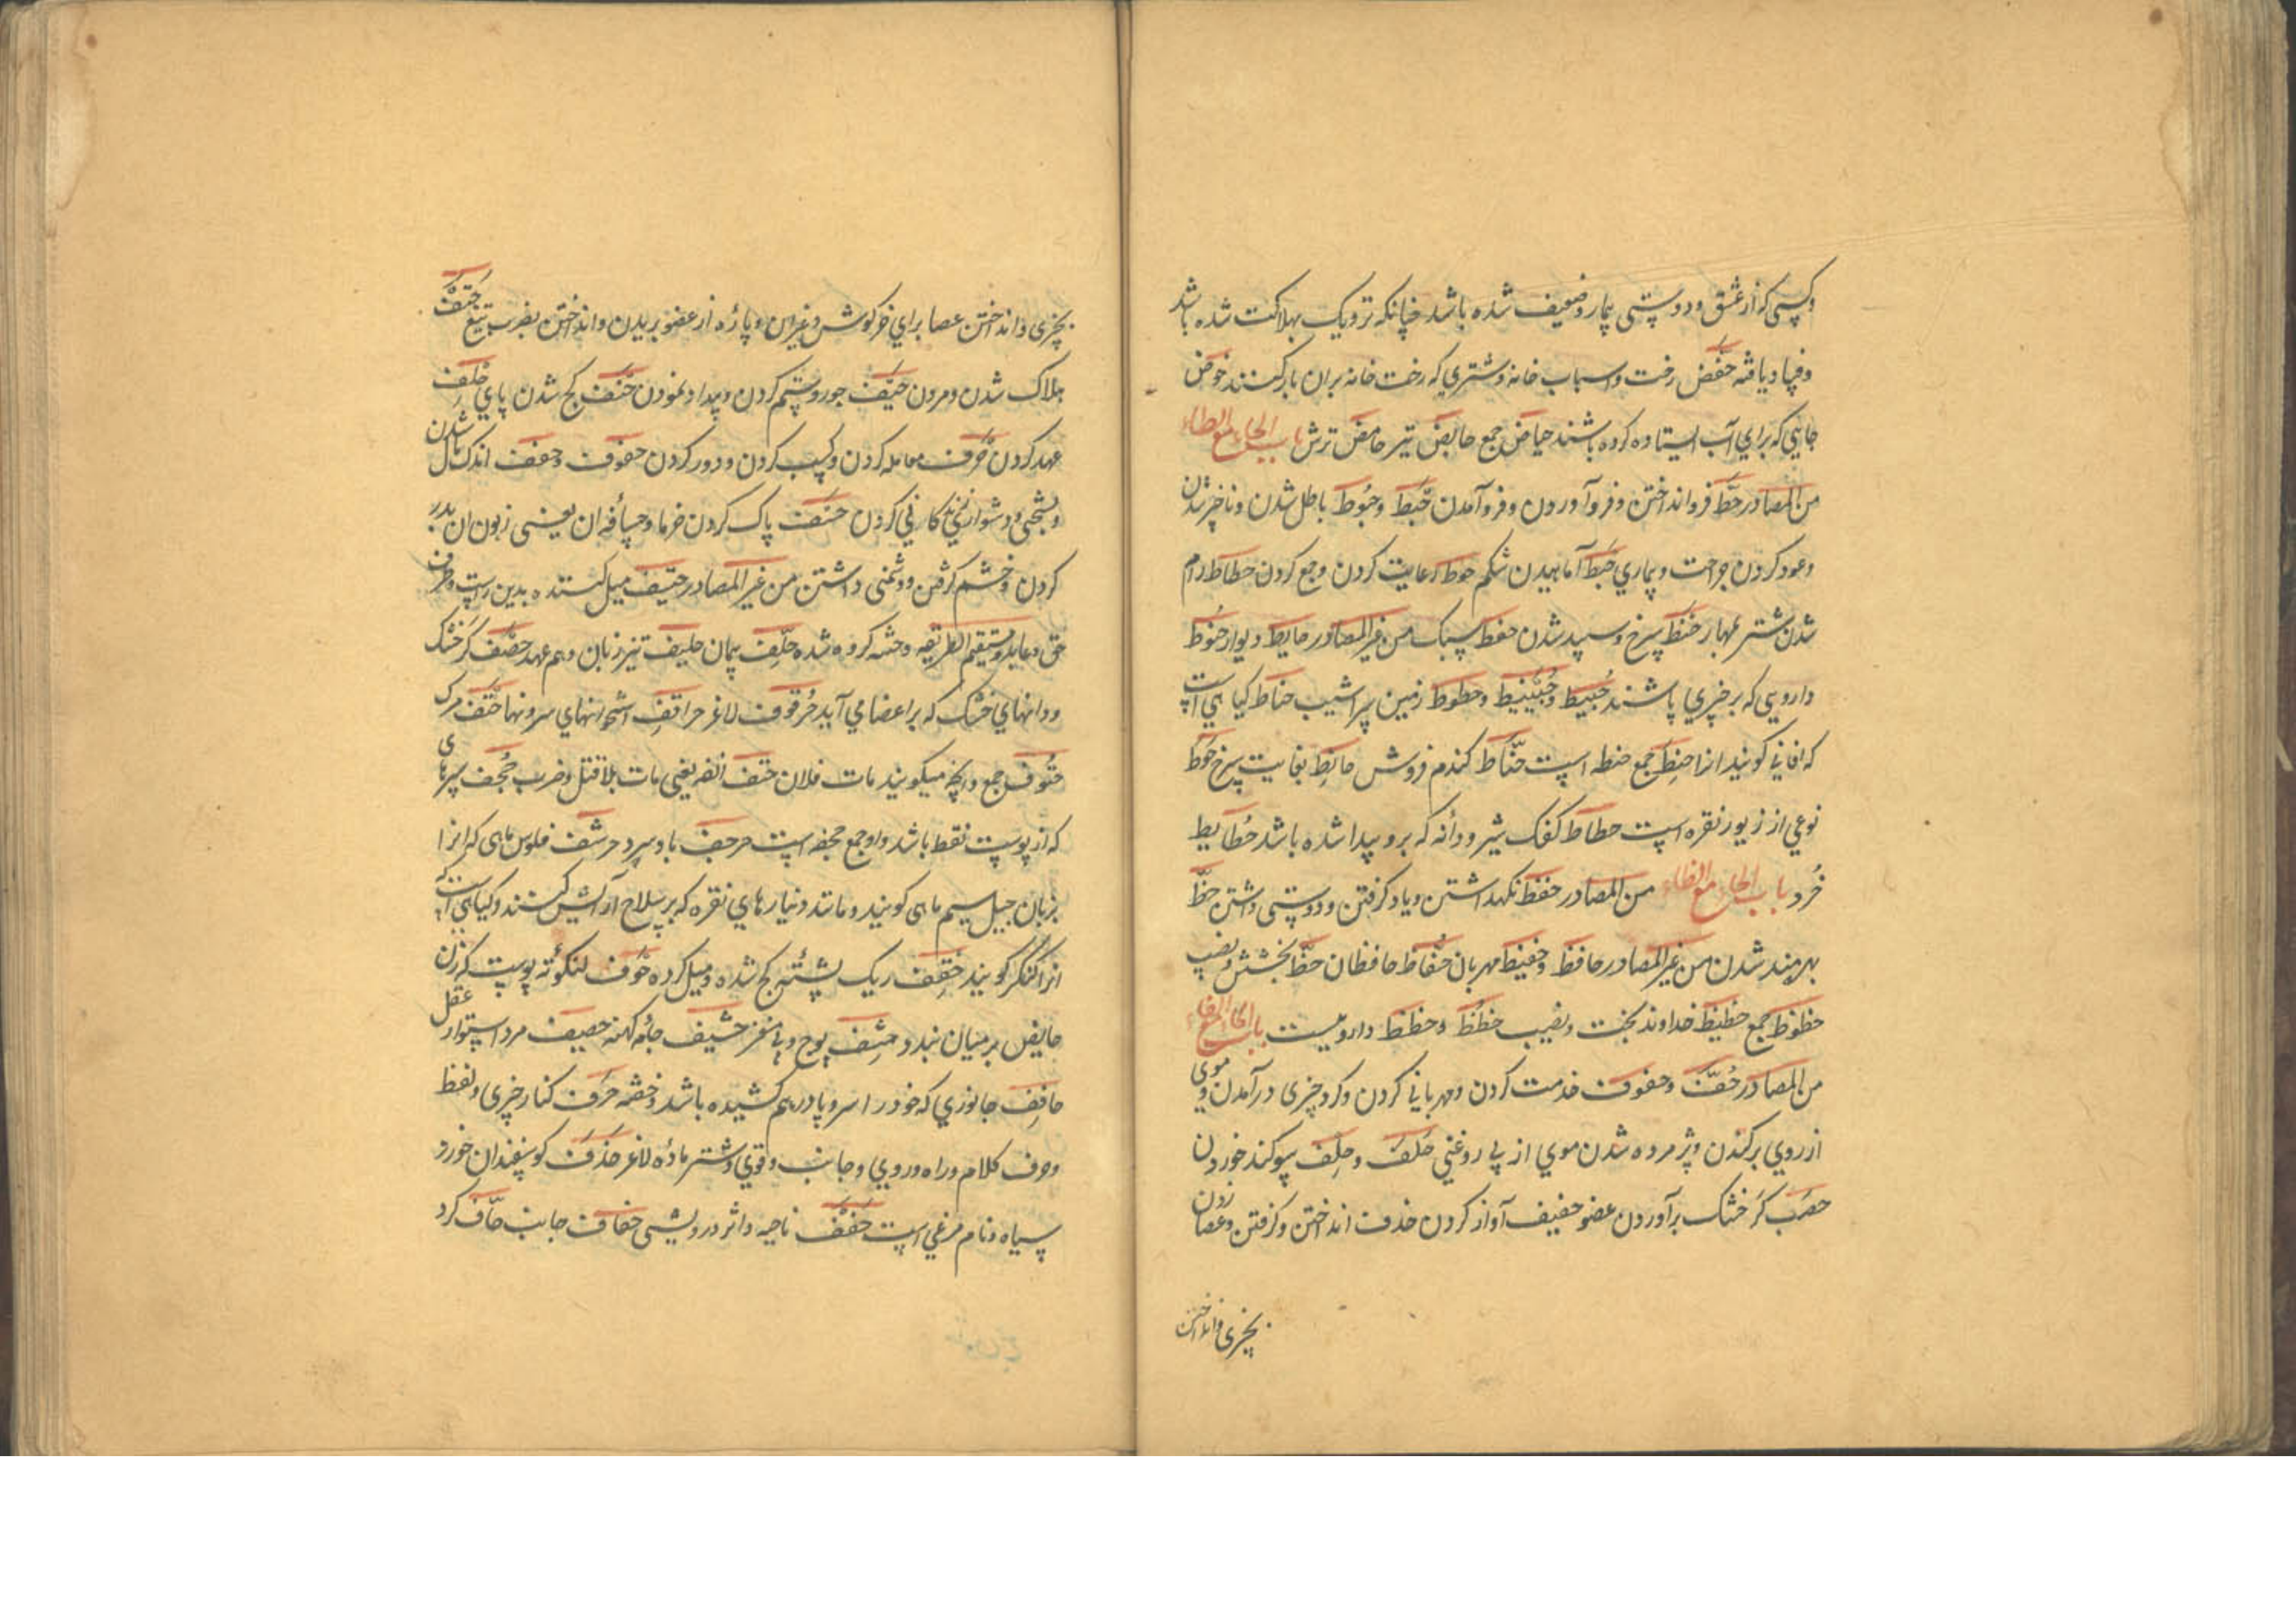 وکسی که از عشق و دوستی بیمار و ضعیف شده باشد چنانکه نزدیک بهلاکت شده باشد
و فساد یافته حفض رخت و اسباب خانه و شتری که رخت خانه بران بار کنند حوض
جایی که برای آب ایستاده کرده باشند حیاض جمع حایض تیر حامض ترش باب الحاء مع الطاء
من المصادر حط فرو انداختن و فرو آوردن و فرو آمدن حبط و حبوط باطل شدن و ناچیز شدن
و عود کردن جراحت و بیماری حبط آماهیدن شکم حوط رعایت کردن و جمع کردن حطاط رام
شدن شتر بمهار حنط سرخ و سپید شدن حفط سبک من غیر المصادر حایط دیوار حنوط
دارویی که بر چیزی پاشند حبیط و حبینیط و حطوط زمین سراشیب حناط کیاهی است
که افانی کویند انرا حنط جمع حنطه است حناط کندم فروش حانط بغایت سرخ حوط
نوعی از زیور نقره است حطاط کفک شیر و دانه که برو پیدا شده باشد حطایط
خرد باب الحاء مع الظاء من المصادر حفظ نکهداشتن و یاد کرفتن و دوستی داشتن حظ
بهرمند شدن من غیر المصادر حافظ و حفیظ مهربان حفاظ حافظان حظ بخشش و نصیب
حظوظ جمع حظیظ خداوند بخت و نصیب حظظ و حظظ داروییست باب الحاء مع الفاء
من المصادر حف و حفوف خدمت کردن و مهربانی کردن و کرد چیزی در آمدن و موی
از روی برکندن و پژمرده شدن موی از بی روغنی حلف و حلف سوکند خوردن
حصب کر خشک برآوردن عضو حفیف آواز کردن حذف انداختن و کرفتن و عصا زدن
بچیزی و انداختن
بچیزی و انداختن عصا برای خرکوش و غیر ان و پاره از عضو بریدن و انداختن بضرب تیغ حتف
هلاک شدن و مردن حیف جور و ستم کردن و بیداد نمودن حنف کج شدن پای حلف
عهد کردن حرف معامله کردن و کسب کردن و دور کردن حفوف و حفف اندک مال شدن
و بسختی و دشواری زندکانی کردن حسف پاک کردن خرما و حسافه ان یعنی زبون ان بدر
کردن و خشم کرفتن و دشمنی داشتن من غیر المصادر حنیف میل کننده بدین راست و طرف
حق و عابد و مستقیم الطریقه و ختنه کرده شده حلف پیمان حلیف تیز زبان و هم عهد حصف کر خشک
و دانهای خشک که بر اعضا می آید حرقوف لاغر حراقف استخوانهای سرونها حتف مرک
حتوف جمع و انچه میکویند مات فلان حتف انفه یعنی مات بلا قتل و ضرب حجف سپرهای
که از پوست فقط باشد و او جمع حجفه است حرجف باد سرد حرشف فلوس ماهی که انرا
بزبان جیل سیم ماهی کویند و مانند دنیارهای نقره که بر سلاح آرایش کنند و کیاهی است که
انرا کنکر کویند حقف ریک پشته کج شده و میل کرده حوف لنکوته پوست که زن
حایض بر میان بندد حثف پوچ و بی مغز حشیف جامه کهنه حصیف مرد استوار عقل
حاقف جانوری که خود را سر و پا در هم کشیده باشد و خفته حرف کنار چیزی و لفظ
و حرف کلام و راه و روی و جانب و قوی و شتر ماده لاغر حذف کوسفندان خورد
سیاه و نام مرغی است حفف ناحیه و اثر درویشی حفاف جانب حاف کرد